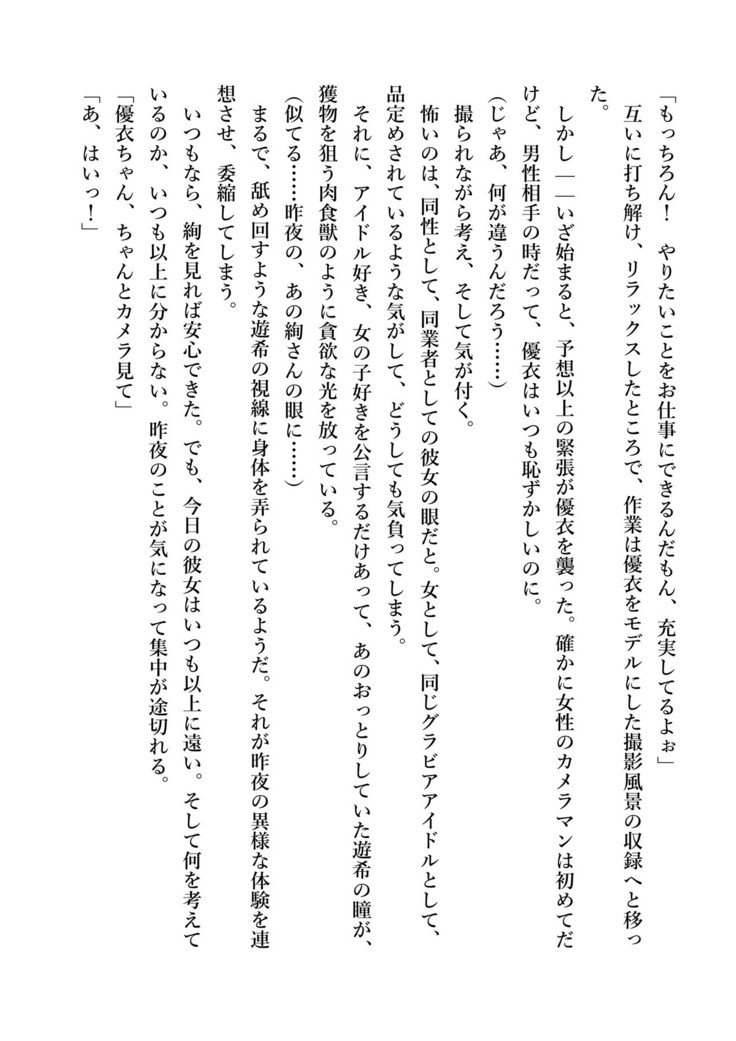 「もっちろん！　やりたいことをお仕事にできるんだもん、充実してるよぉ」
　互いに打ち解け、リラックスしたところで、作業は優衣をモデルにした撮影風景の収録へと移っ
た。
　しかし――いざ始まると、予想以上の緊張が優衣を襲った。確かに女性のカメラマンは初めてだ
けど、男性相手の時だって、優衣はいつも恥ずかしいのに。
（じゃあ、何が違うんだろう……）
　撮られながら考え、そして気が付く。
　怖いのは、同性として、同業者としての彼女の眼だと。女として、同じグラビアアイドルとして、
品定めされているような気がして、どうしても気負ってしまう。
　それに、アイドル好き、女の子好きを公言するだけあって、あのおっとりしていた遊希の瞳が、
獲物を狙う肉食獣のように貪欲な光を放っている。
（似てる……昨夜の、あの絢さんの眼に……）
　まるで、舐め回すような遊希の視線に身体を弄られているようだ。それが昨夜の異様な体験を連
想させ、委縮してしまう。
　いつもなら、絢を見れば安心できた。でも、今日の彼女はいつも以上に遠い。そして何を考えて
いるのか、いつも以上に分からない。昨夜のことが気になって集中が途切れる。
「優衣ちゃん、ちゃんとカメラ見て」
「あ、はいっ！」